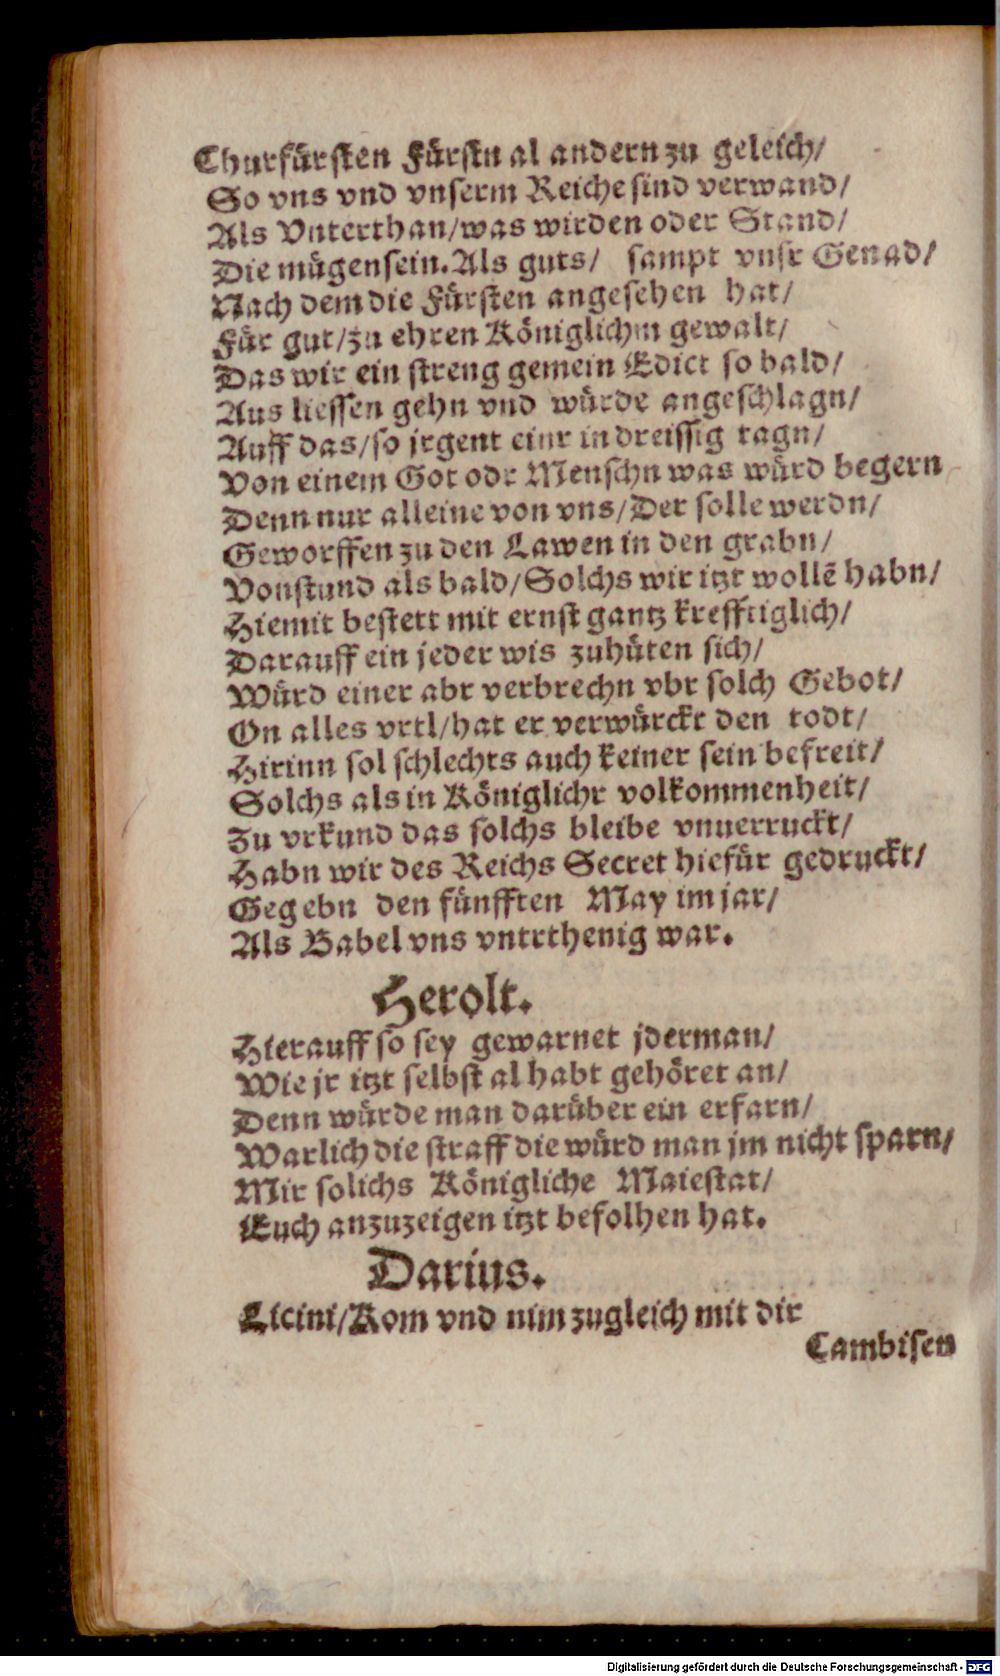 Churfürsten Fürstn al andern zu geleich/
So vns vnd vnserm Reiche sind verwand/
Als Vnterthan/was wirden oder Stand/
Die mügen sein. Als guts/ sampt vnsr Genad/
Nach dem die Fürsten angesehen hat/
Für gut/zu ehren Königlichm gewalt/
Das wir ein streng gemein Edict so bald/
Aus liessen gehn vnd würde angeschlagn/
Auff das/so jrgent einr in dreissig tagn/
Von einem Got odr Menschn was würd begern
Denn nur alleine von vns/Der solle werdn/
Geworffen zu den Lawen in den grabn/
Vonstund als bald/Solchs wir itzt wollẽ habn/
Hiemit bestett mit ernst gantz krefftiglich/
Darauff ein jeder wis zuhüten sich/
Würd einer abr verbrechn vbr solch Gebot/
On alles vrtl/hat er verwürckt den todt/
Hirinn sol schlechts auch keiner sein befreit/
Solchs als in Königlichr volkommenheit/
Zu vrkund das solchs bleibe vnuerruckt/
Habn wir des Reichs Secret hiefür gedruckt/
Gegebn den fünfften May im jar/
Als Babel vns vntrthenig war.
Herolt.
Hierauff so sey gewarnet jderman/
Wie jr itzt selbst al habt gehöret an/
Denn würde man darüber ein erfarn/
Warlich die straff die würd man jm nicht sparn/
Mir solichs Königliche Maiestat/
Euch anzuzeigen itzt befolhen hat.
Darius.
Licini/Kom vnd nim zugleich mit dir
Cambisen
Digitalisierung gefördert durch die Deutsche Forschungsgemeinschaft - DFG